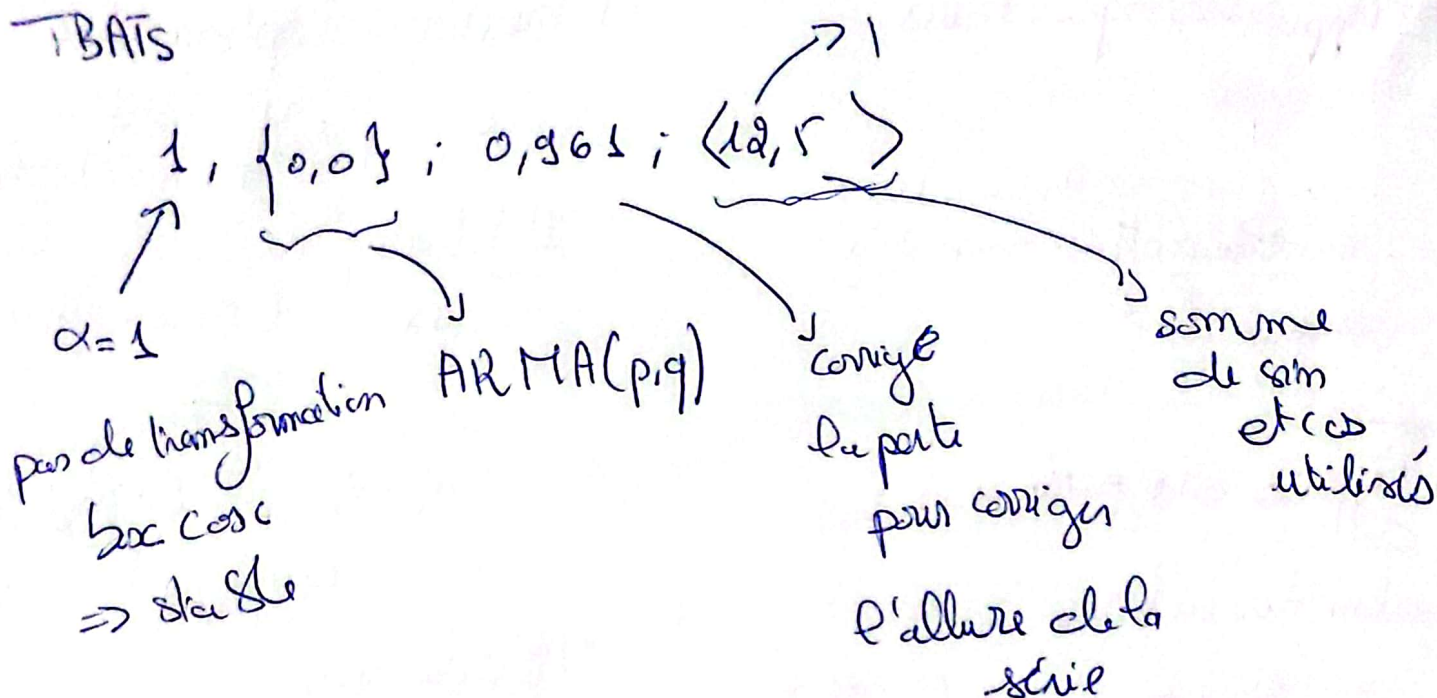 TBATS
1
1, {0,0} ; 0,961 ; <12,5>
α=1
pas de transformation
box cox
=> stable
ARMA(p,q)
corrige
la pente
pour corriger
l'allure de la
série
somme
de sin
et cos
utilisés